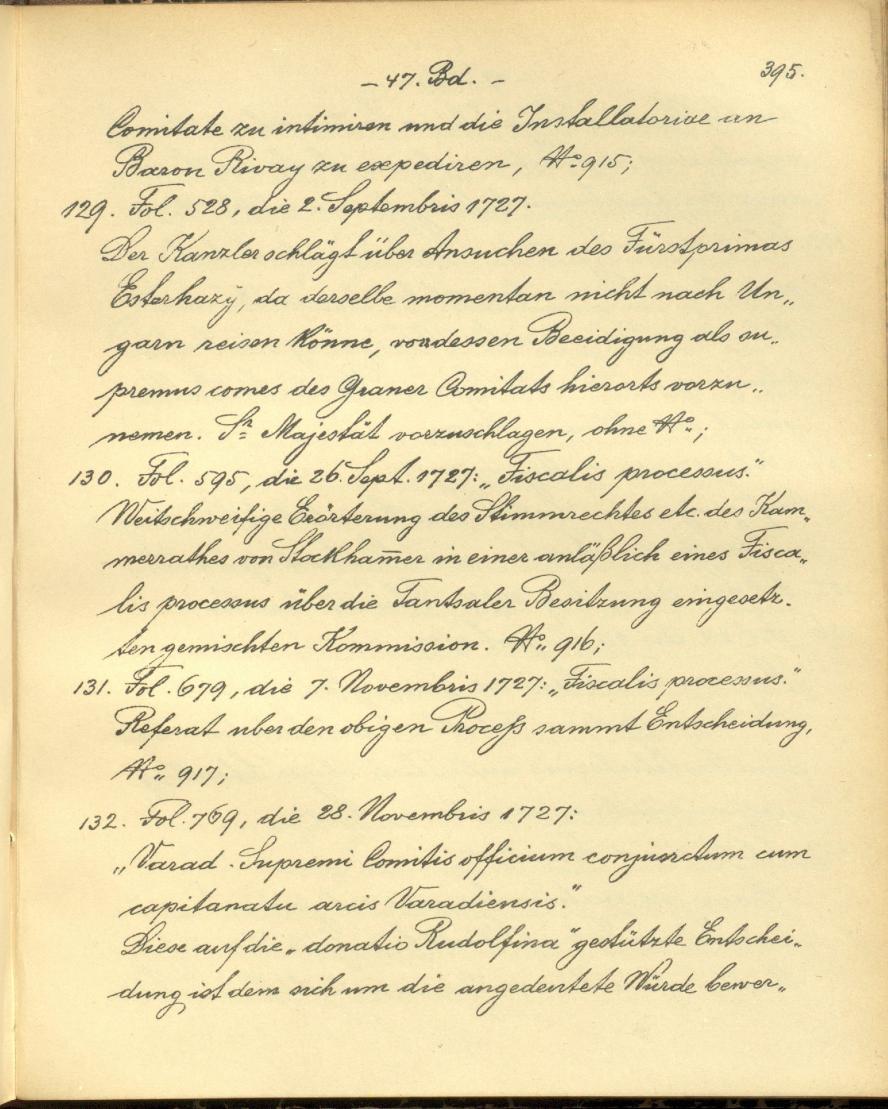 – 47. Bd. –
395.
Comitate zu intimiren und die Installatoriae an
Baron Rivay zu expediren, No 915;
129. Fol. 528, die 2. Septembris 1727.
Der Kanzler schlägt über Ansuchen des Fürstprimas
Esterhazÿ, da derselbe momentan nicht nach Un„
garn reisen könne, vor dessen Beeidigung als su„
premus comes des Graner Comitats hierorts vorzu„
nemen. Sr Majestät vorzuschlagen, ohne No;
130. Fol. 595, die 26. Sept. 1727: „Fiscalis processus."
Weitschweifige Erörterung des Stimmrechtes etc. des Kam„
merrathes von Stockham̄er in einer anläßlich eines Fisca„
lis processus über die Tantsaler Besitzung eingesetz-
ten gemischten Kommission. No 916;
131. Fol. 679, die 7. Novembris 1727: „Fiscalis processus."
Referat uber den obigen Process sammt Entscheidung,
No 917;
132. Fol. 769, die 28. Novembris 1727:
„Varad. Supremi Comitis officium conjunctum cum
capitanatu arcis Varadiensis."
Diese auf die „donatio Rudolfina" gestützte Entschei„
dung ist dem sich um die angedeutete Würde bewer„